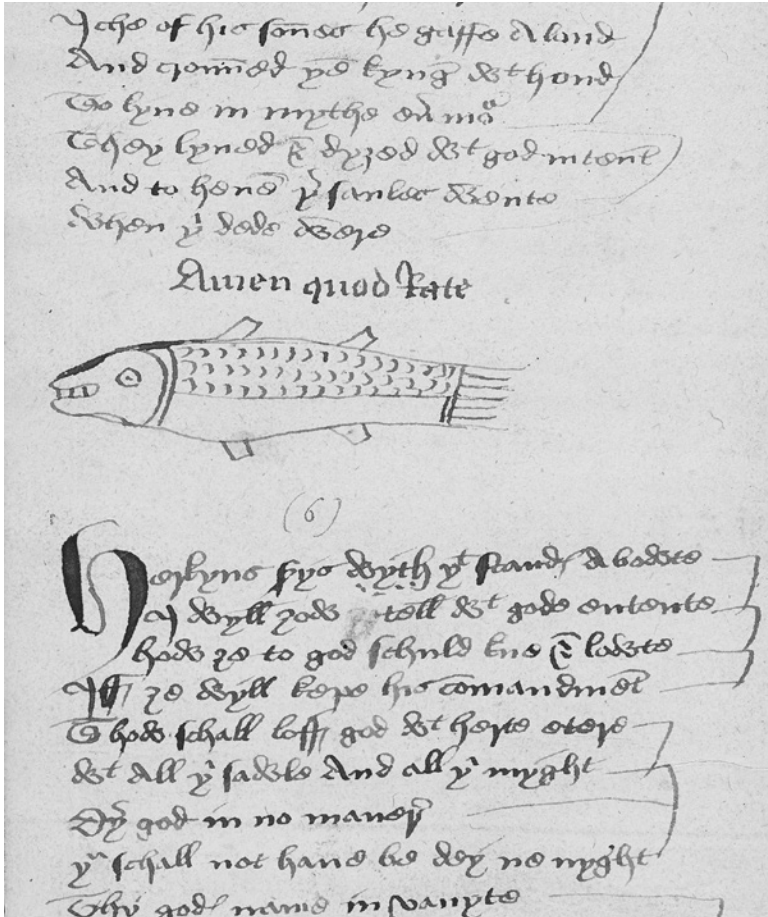 Iche of his sones he gaffe a land
And crouned þe kyng wt hond
To lyue in myrthe
They lyued & dyzed wt god intent
And to heuen þr saules wente
When þr dede were
Amen quod Rate
(6)
Herkyns syrs wyth yt stand a bowte
I wyll zow tell wt gode entente
how ze to god schuld kne & lowte
Iff ze wyll kepe his comandment
Thow schall loff god wt herte etere
wt All þi sawle And all þi myght
Oþer god in no maner
þu schall not haue be dey ne nyght
Thy god name in vanyte